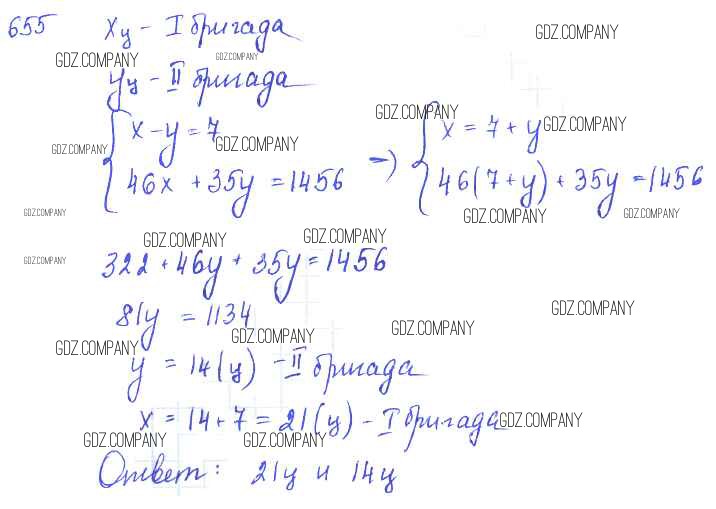 655 xц - I бригада
GDZ.COMPANY
GDZ.COMPANY GDZ.COMPANY
yц - II бригада
{ x - y = 7 -> { x = 7 + y
GDZ.COMPANY GDZ.COMPANY GDZ.COMPANY GDZ.COMPANY
46x + 35y = 1456 46(7+y) + 35y = 1456
GDZ.COMPANY GDZ.COMPANY GDZ.COMPANY
GDZ.COMPANY GDZ.COMPANY GDZ.COMPANY
322 + 46y + 35y = 1456
81y = 1134
GDZ.COMPANY
GDZ.COMPANY GDZ.COMPANY GDZ.COMPANY
y = 14 (ц) - II бригада
x = 14 + 7 = 21 (ц) - I бригада
GDZ.COMPANY
GDZ.COMPANY GDZ.COMPANY
Ответ: 21ц и 14ц